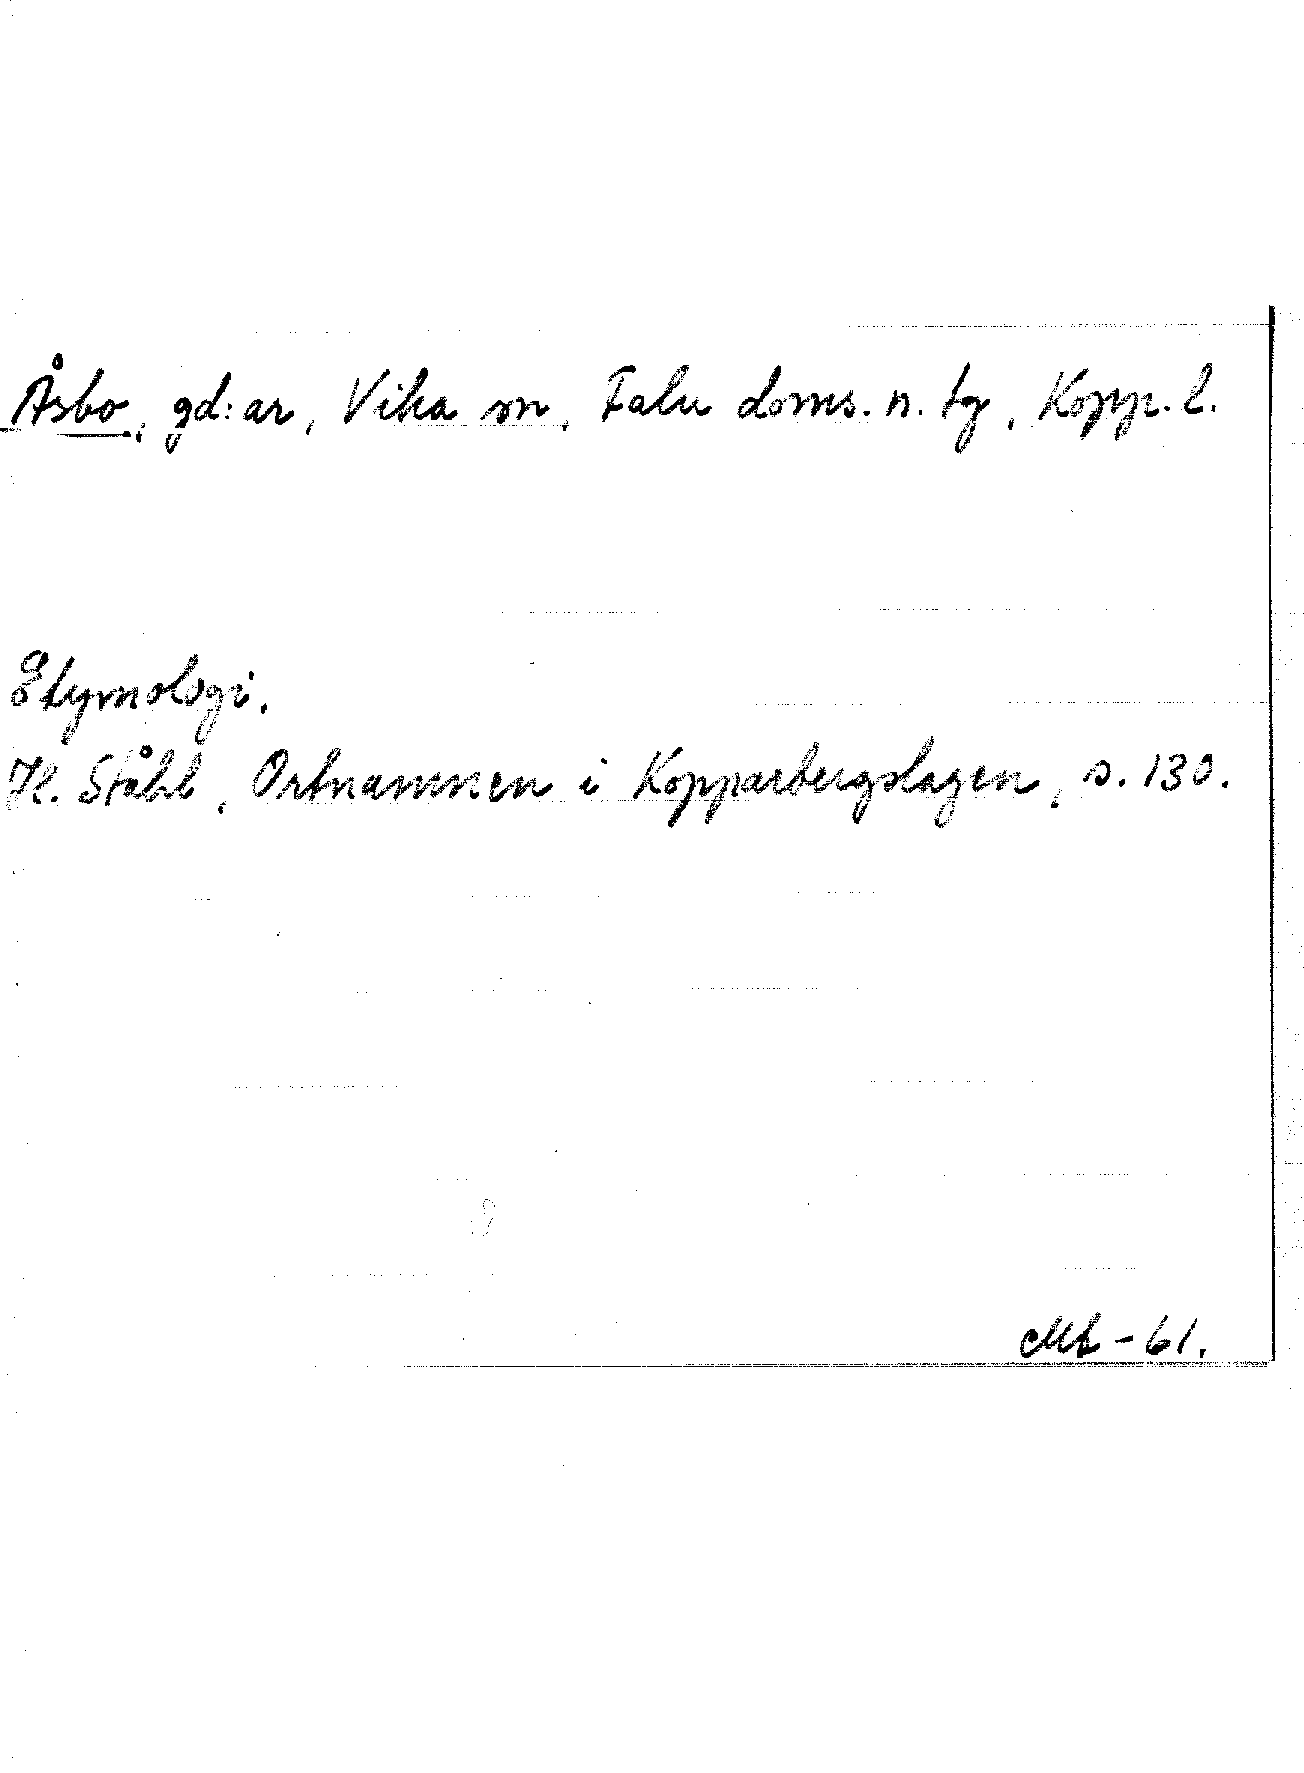 Åsbo, gd:ar, Vika sn, Falu doms. n. tg, Kopp. l.
Etymologi.
H. Ståhl, Ortnamnen i Kopparbergslagen, s. 130.
-61.